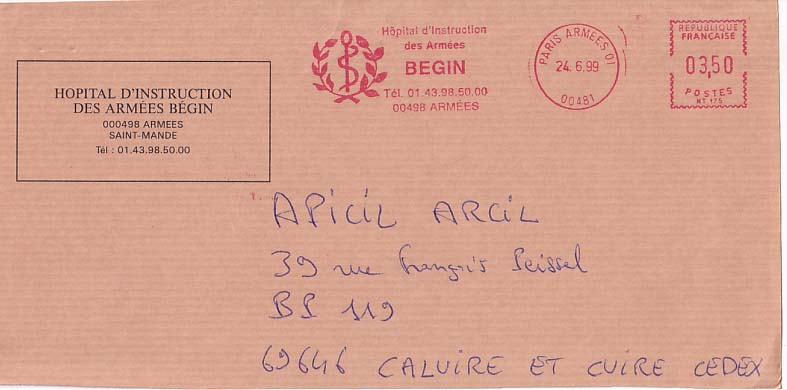 HOPITAL D'INSTRUCTION
DES ARMÉES BÉGIN
000498 ARMEES
SAINT-MANDE
Tél : 01.43.98.50.00
Hôpital d'Instruction
des Armées
BEGIN
Tél. 01.43.98.50.00
00498 ARMÉES
PARIS ARMEES 01
24.6.99
00481
REPUBLIQUE
FRANÇAISE
03,50
POSTES
NT 175
APICIL ARCIL
39 rue François Peissel
BP 119
69646 CALUIRE ET CUIRE CEDEX